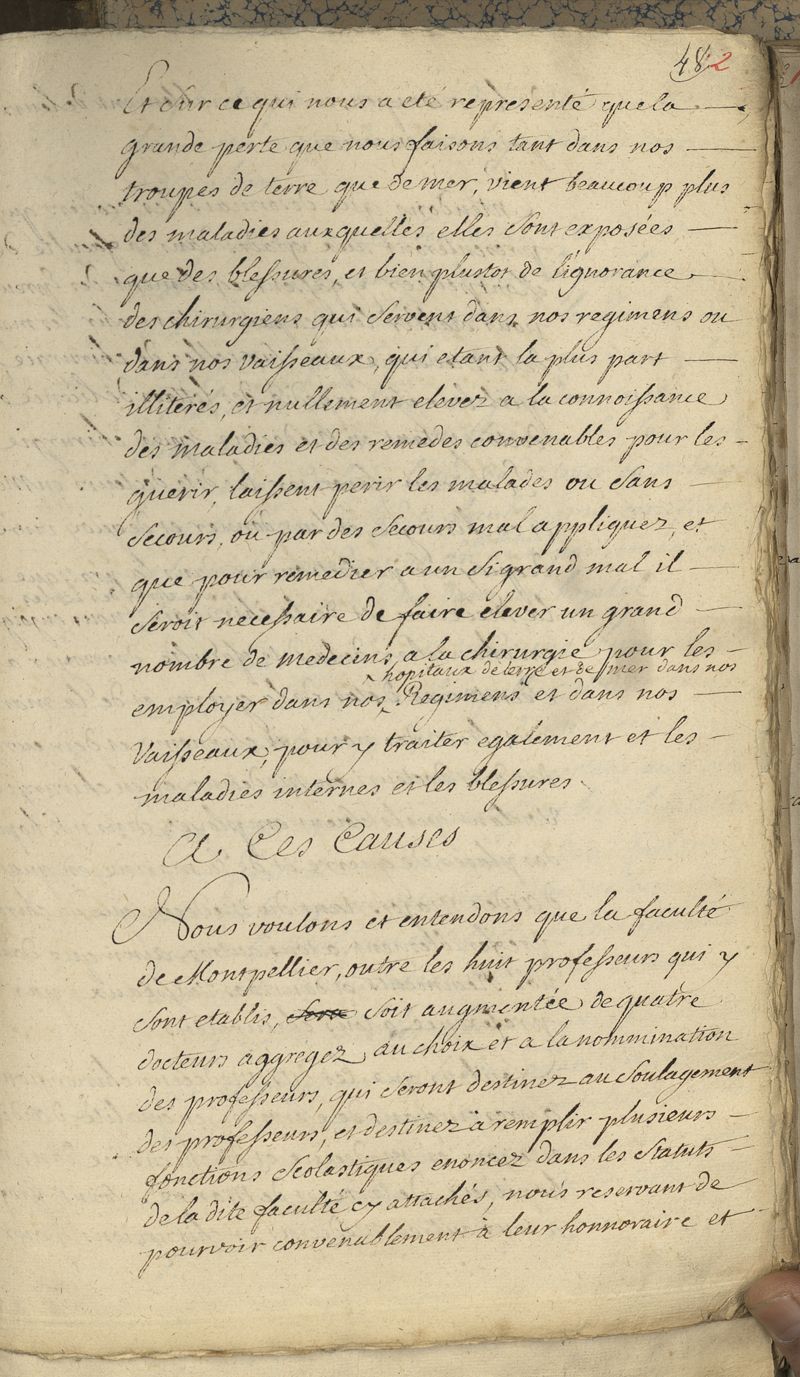 482
Et sur ce qui nous a eté representé que la
grande perte que nous faisons tant dans nos
troupes de terre que de mer, vient beaucoup plus
des maladies auxquelles elles sont exposées
que des blessures, et bien plustot de l'ignorance
des chirurgiens qui servent dans nos regimens ou
dans nos vaisseaux, qui etant la plus part
illiterés, et nullement elevez a la connoissance
des maladies et des remedes convenables pour les
guerir, laissent perir les malades ou sans
secours, ou par des secours mal appliquez, et
que pour remedier a un si grand mal il
seroit necessaire de faire elever un grand
nombre de medecins a la chirurgie pour les
hopitaux de terre et de mer dans nos
employer dans nos Regimens et dans nos
Vaisseaux, pour y traiter egalement et les
maladies internes et les blessures
A Ces Causes
Nous voulons et entendons que la faculté
de Montpellier, outre les huit professeurs qui y
sont etablis, sera soit augmentée de quatre
docteurs aggregez au choix et a la nommination
des professeurs, qui seront destinez au soulagement
des professeurs, et destinez a remplir plusieurs
fonctions scolastiques enoncez dans les statuts
de la dite faculté cy attachés, nous reservant de
pourvoir convenablement à leur honnoraire et